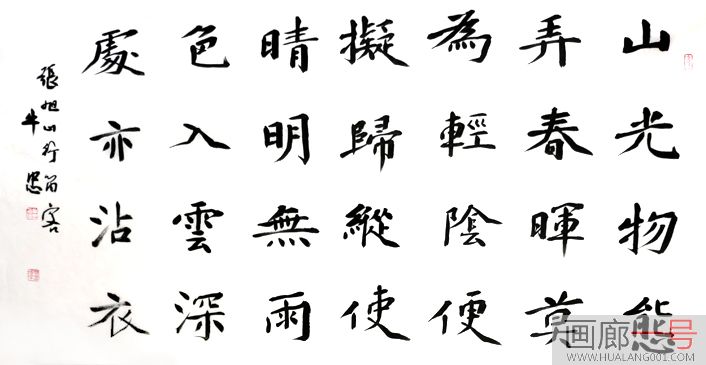 山光物態
弄春暉莫
為輕陰便
擬歸縱使
晴明無雨
色入雲深
處亦沾衣
張旭山行留客
牛
画廊 号
WWW.HUALANG001.COM